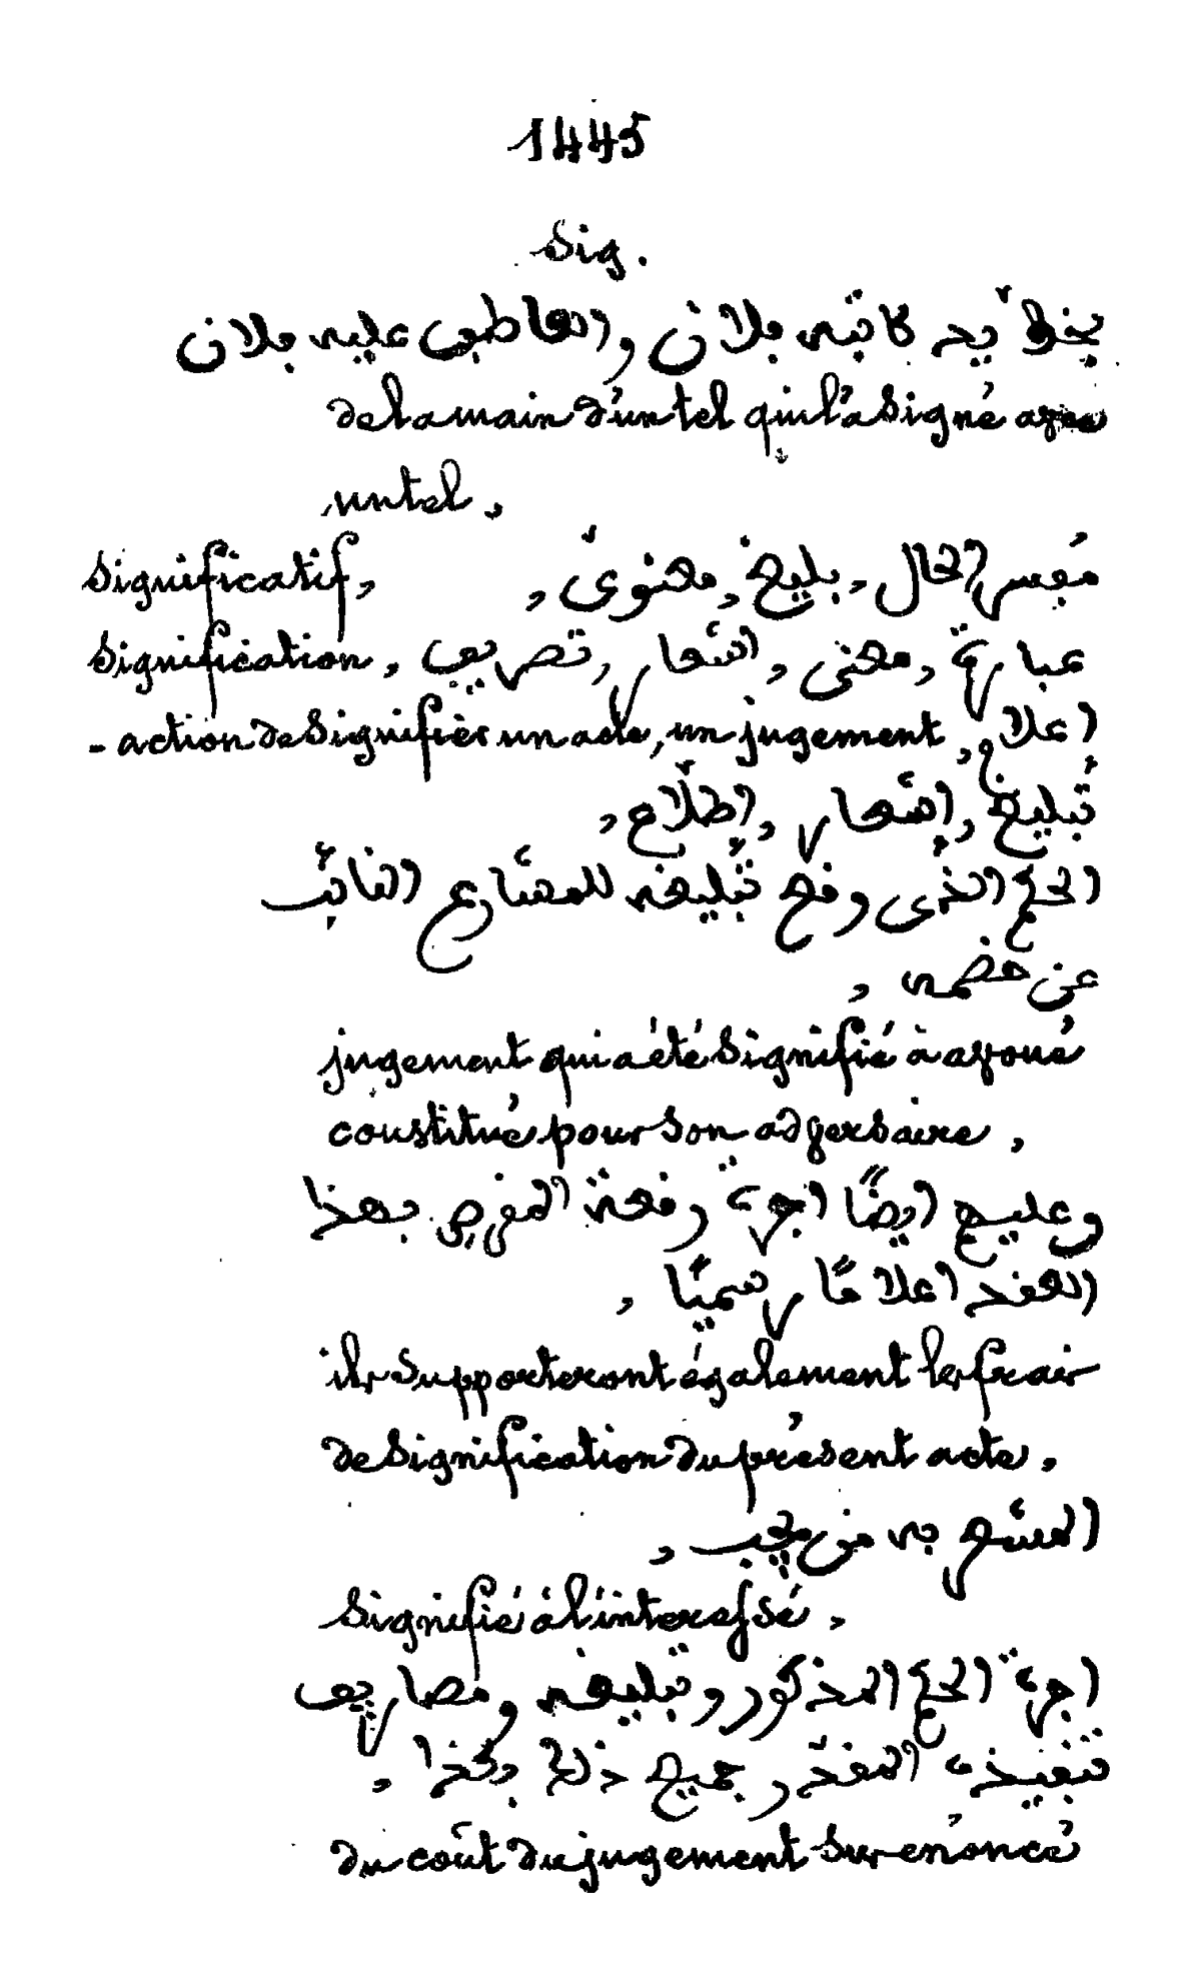 1445
Sig.
بخطّ يد كاتبه فلان والعاطف عليه فلان
de la main d'un tel qui l'a signé avec
un tel.
Significatif, مُفسر الحال, بليغ, معنوىّ,
Signification, عبارة, معنى, اشعار, تصريف,
- action de signifier un acte, un jugement, إعلام,
تبليغ, إشعار, إطلاع,
الحكم الذى وقع تبليغه للمشارع النائب
عن خصمه,
jugement qui a été signifié à avoué
constitué pour son adversaire,
وعليهم ايضًا اجرة رفعة بهذا
العقد اعلامًا رسميًّا,
ils supporteront également les frais
de signification du présent acte.
المشعر به من يجب,
Signifié à l'interessé,
اجرة الحكم المذكور وتبليغه ومصاريف
تنفيذه جميع ذلك بكذا,
du coût du jugement sus-énoncé